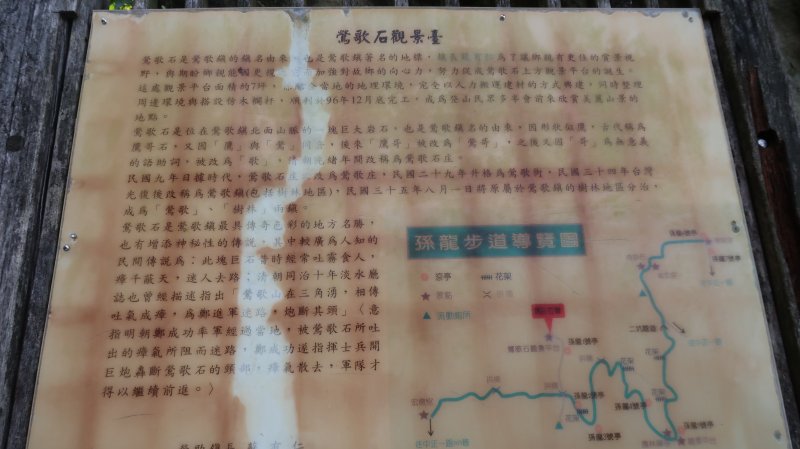 鶯歌石觀景臺
鶯歌石是鶯歌鎮的鎮名由來，也是鶯歌鎮著名的地標，為了讓鄉親有更佳的賞景視
野，與期盼鄉親能加強對故鄉的向心力，努力促成鶯歌石上方觀景平台的誕生。
這處觀景平台面積約7坪，當地的地理環境，完全以人力搬運建材的方式興建，同時整理
周邊環境與搭設仿木欄杆，順利於96年12月底完工，成為登山民眾多年會前來欣賞美麗山景的
地點。
鶯歌石是位在鶯歌鎮北面山脈的一塊巨大岩石，也是鶯歌鎮名的由來，因形狀似鷹，古代稱為
鷹哥石，又因「鷹」與「鶯」同音，後來「鷹哥」被改為「鶯哥」，之後又因「哥」為無意義
的語助詞，被改為「歌」，清朝光緒年間改稱為鶯歌石庄。
民國九年日據時代，鶯歌石庄改為鶯歌庄，民國二十九年升格為鶯歌街，民國三十四年台灣
光復後改稱為鶯歌鎮(包括樹林地區)，民國三十五年八月一日將原屬於鶯歌鎮的樹林地區分治，
成為「鶯歌」、「樹林」兩鎮。
鶯歌石是鶯歌鎮最具傳奇色彩的地方名勝，
也有增添神秘性的傳說，其中較廣為人知的
民間傳說為：此塊巨石昔時經常吐霧食人，
瘴千蔽天，迷人去路；清朝同治十年淡水廳
誌也曾經描述指出「鶯歌山在三角湧，相傳
吐氣成瘴，為鄭進軍迷路，炮斷其頸」〈意
指明朝鄭成功率軍經過當地，被鶯歌石所吐
出的瘴氣所阻而迷路，鄭成功遂指揮士兵開
巨炮轟斷鶯歌石的頸部，瘴氣散去，軍隊才
得以繼續前進。〉
鶯歌鎮長 蘇有仁
孫龍步道導覽圖
涼亭
花架
景點
流動廁所
孫龍1號亭
鶯歌石觀景平台
孫龍2號亭
孫龍3號亭
孫龍4號亭
花架
花架
花架
宏德宮
往中正一路
二坑龍龍